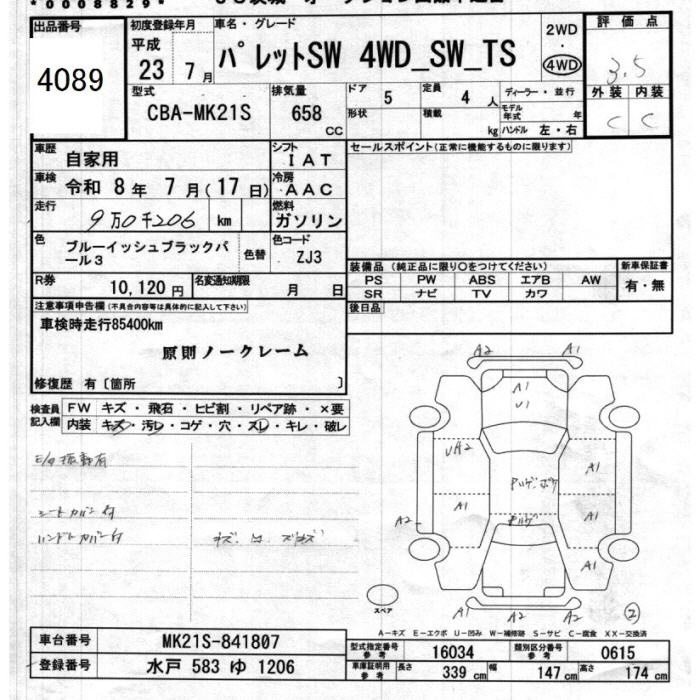 *0008829*
出品番号
4089
初度登録年月
平成
23 7月
車名・グレード
パレットSW 4WD_SW_TS
2WD
・
4WD
評価点
3.5
外装 内装
C C
型式
CBA-MK21S
排気量
658
CC
ドア 5
形状
定員 4 人
積載
kg
ディーラー・並行
モデル年式 年
ハンドル 左・右
車歴 自家用
シフト IAT
車検 令和 8年 7月(17日)
冷房 AAC
走行 9万0千206 km
燃料 ガソリン
色
ブルーイッシュブラックパール3
色替
色コード
ZJ3
R券 10,120円
名変通知期限 月 日
セールスポイント(正常に機能するものに限ります)
装備品(純正品に限り○をつけてください)
新車保証書
PS PW ABS エアB AW
SR ナビ TV カワ
有・無
後日品
注意事項申告欄(不具合内容等は具体的に記入して下さい)
車検時走行85400km
原則ノークレーム
修復歴 有〔箇所 〕
検査員記入欄
FW キズ・飛石・ヒビ割・リペア跡・×要
内装 キズ・汚レ・コゲ・穴・スレ・キレ・破レ
E/g 振動有
シートカバー付
ハンドルカバー付
A2 A1
A1
U1
UA2
A1
A1
A1
A2
A1
A1 A2 A2
②
スペア
A-キズ E-エクボ U-凹み W-補修跡 S-サビ C-腐食 XX-交換済
車台番号 MK21S-841807
登録番号 水戸 583 ゆ 1206
型式指定番号 参考 16034
類別区分番号 参考 0615
車庫証明用 参考 長さ 339 cm 幅 147 cm 高さ 174 cm